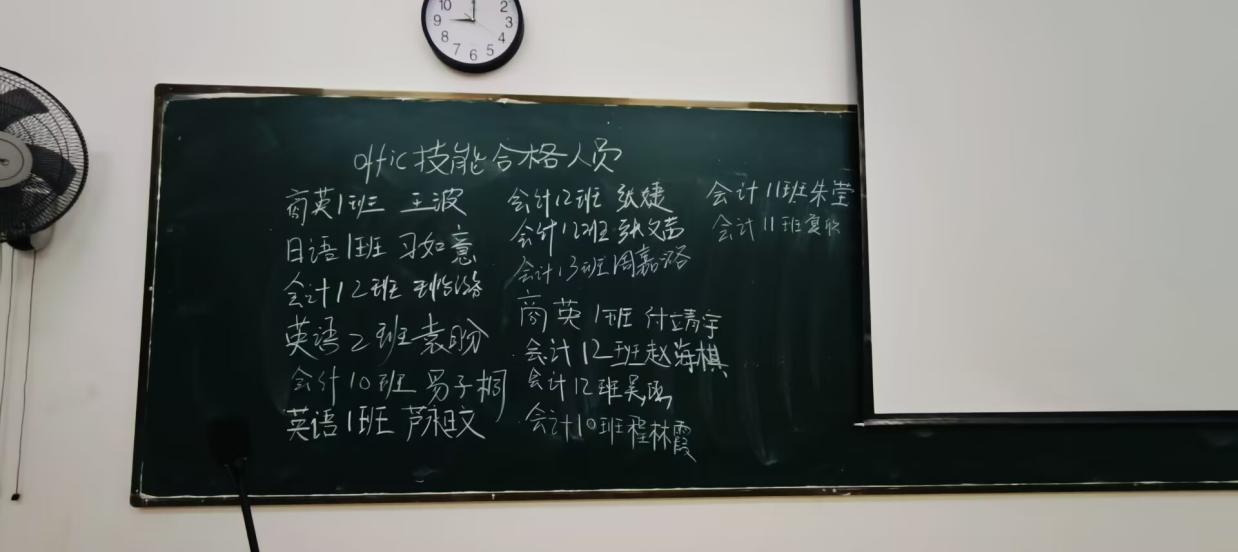 10 2
9 3
8 4
7 6 5
offic技能合格人员
商英1班 王波
日语1班 习如意
会计12班
英语2班袁盼
会计10班 易子桐
英语1班 芦
会计12班 张婕
会计12班 张文茜
会计13班周嘉洛
商英1班 付靖宇
会计12班赵海棋
会计12班吴
会计10班程林霞
会计11班朱莹
会计11班夏欣